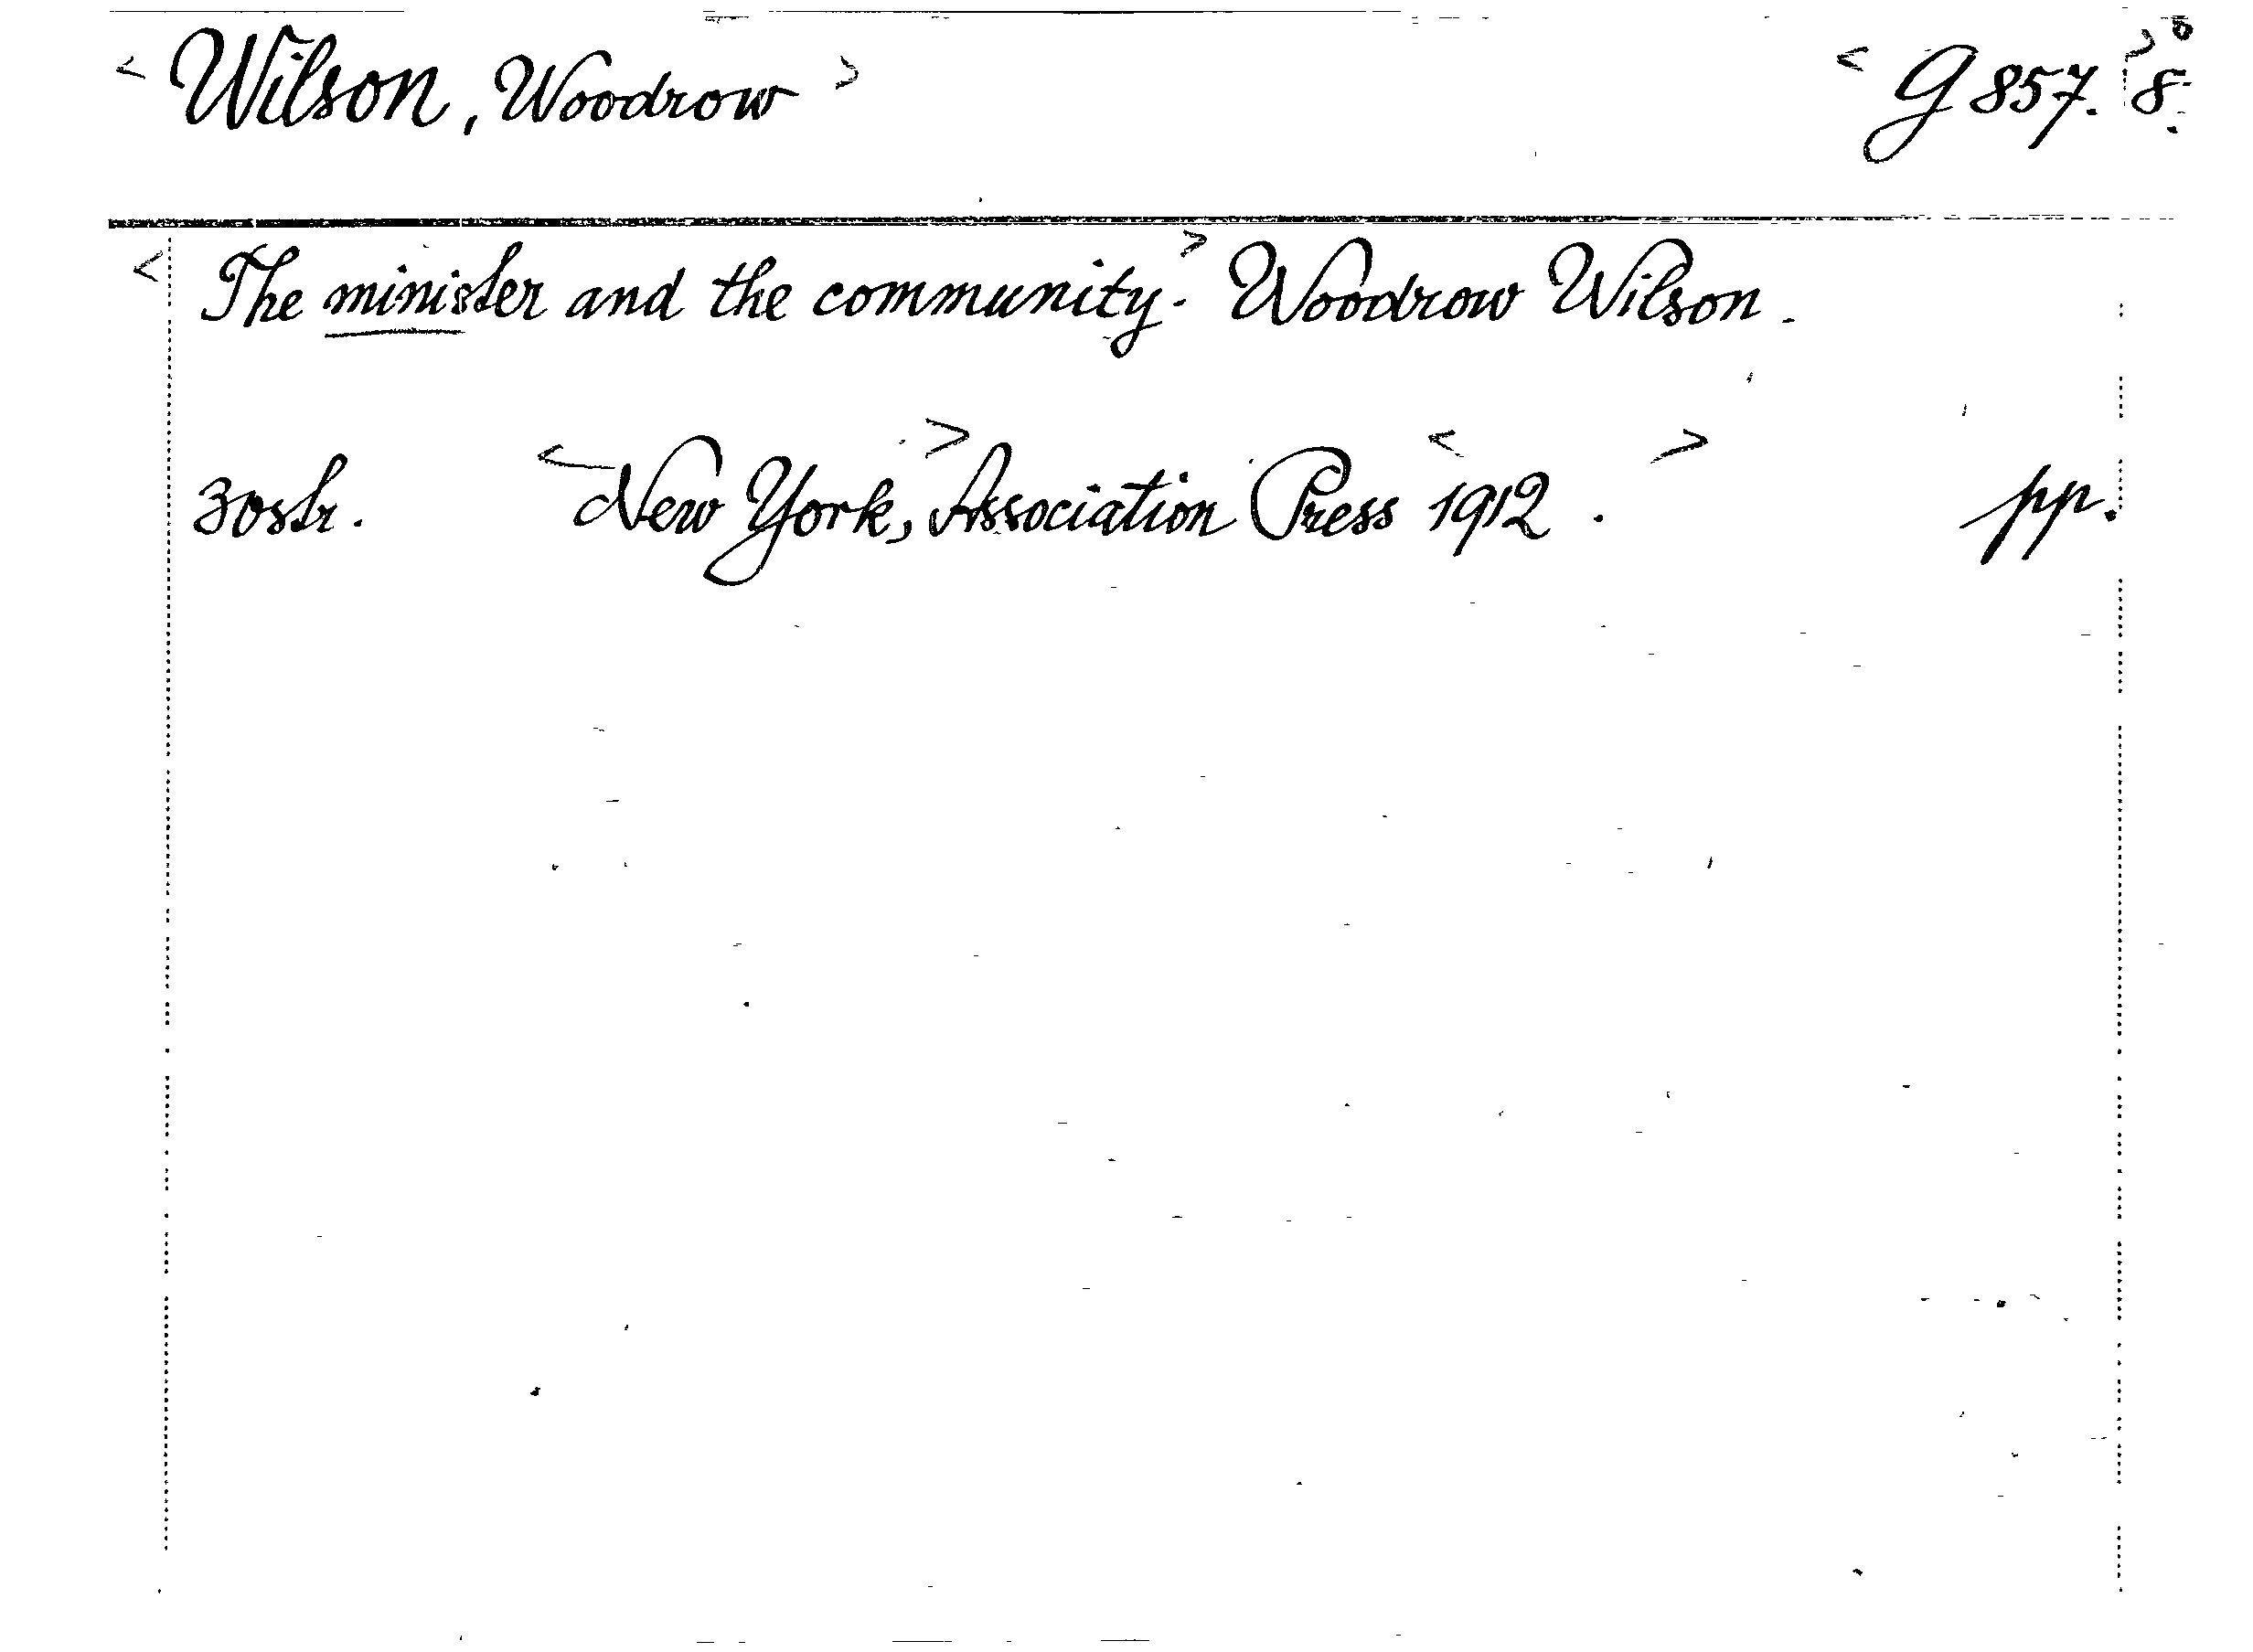 < Wilson, Woodrow > < G 857. > 8° 8.
< The minister and the community. > Woodrow Wilson.
30str. < New York, > Association Press < 1912. > pp.